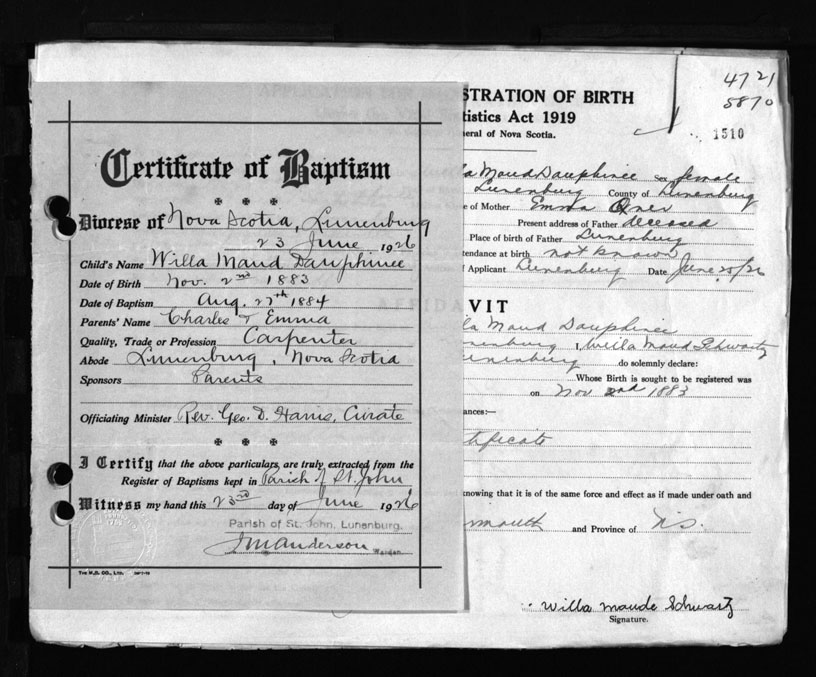 Certificate of Baptism
Diocese of Nova Scotia, Lunenburg
23 June 1926
Child's Name Willa Maud Dauphinee
Date of Birth Nov. 2nd 1883
Date of Baptism Aug. 27th 1884
Parents' Name Charles & Emma
Quality, Trade or Profession Carpenter
Abode Lunenburg, Nova Scotia
Sponsors Parents
Officiating Minister Rev. Geo. D. Harris, Curate
I Certify that the above particulars, are truly extracted from the
Register of Baptisms kept in Parish of St. John
Witness my hand this 23rd day of June 1926
Parish of St. John, Lunenburg.
J M Anderson Warden
The M.B. CO., Ltd.
4721
5870
1510
STRATION OF BIRTH
tistics Act 1919
neral of Nova Scotia.
la Maud Dauphinee Sex female
Lunenburg County of Lunenburg
e of Mother Emma
Present address of Father deceased
Place of birth of Father Lunenburg
tendance at birth not known
f Applicant Lunenburg Date June 25/26
VIT
la Maud Dauphinee
enburg, Willa Maud Schwartz
unenburg do solemnly declare:
Whose Birth is sought to be registered was
on Nov 2nd 1883
ances:—
tificate
knowing that it is of the same force and effect as if made under oath and
mouth and Province of N.S.
Willa Maude Schwartz
Signature.